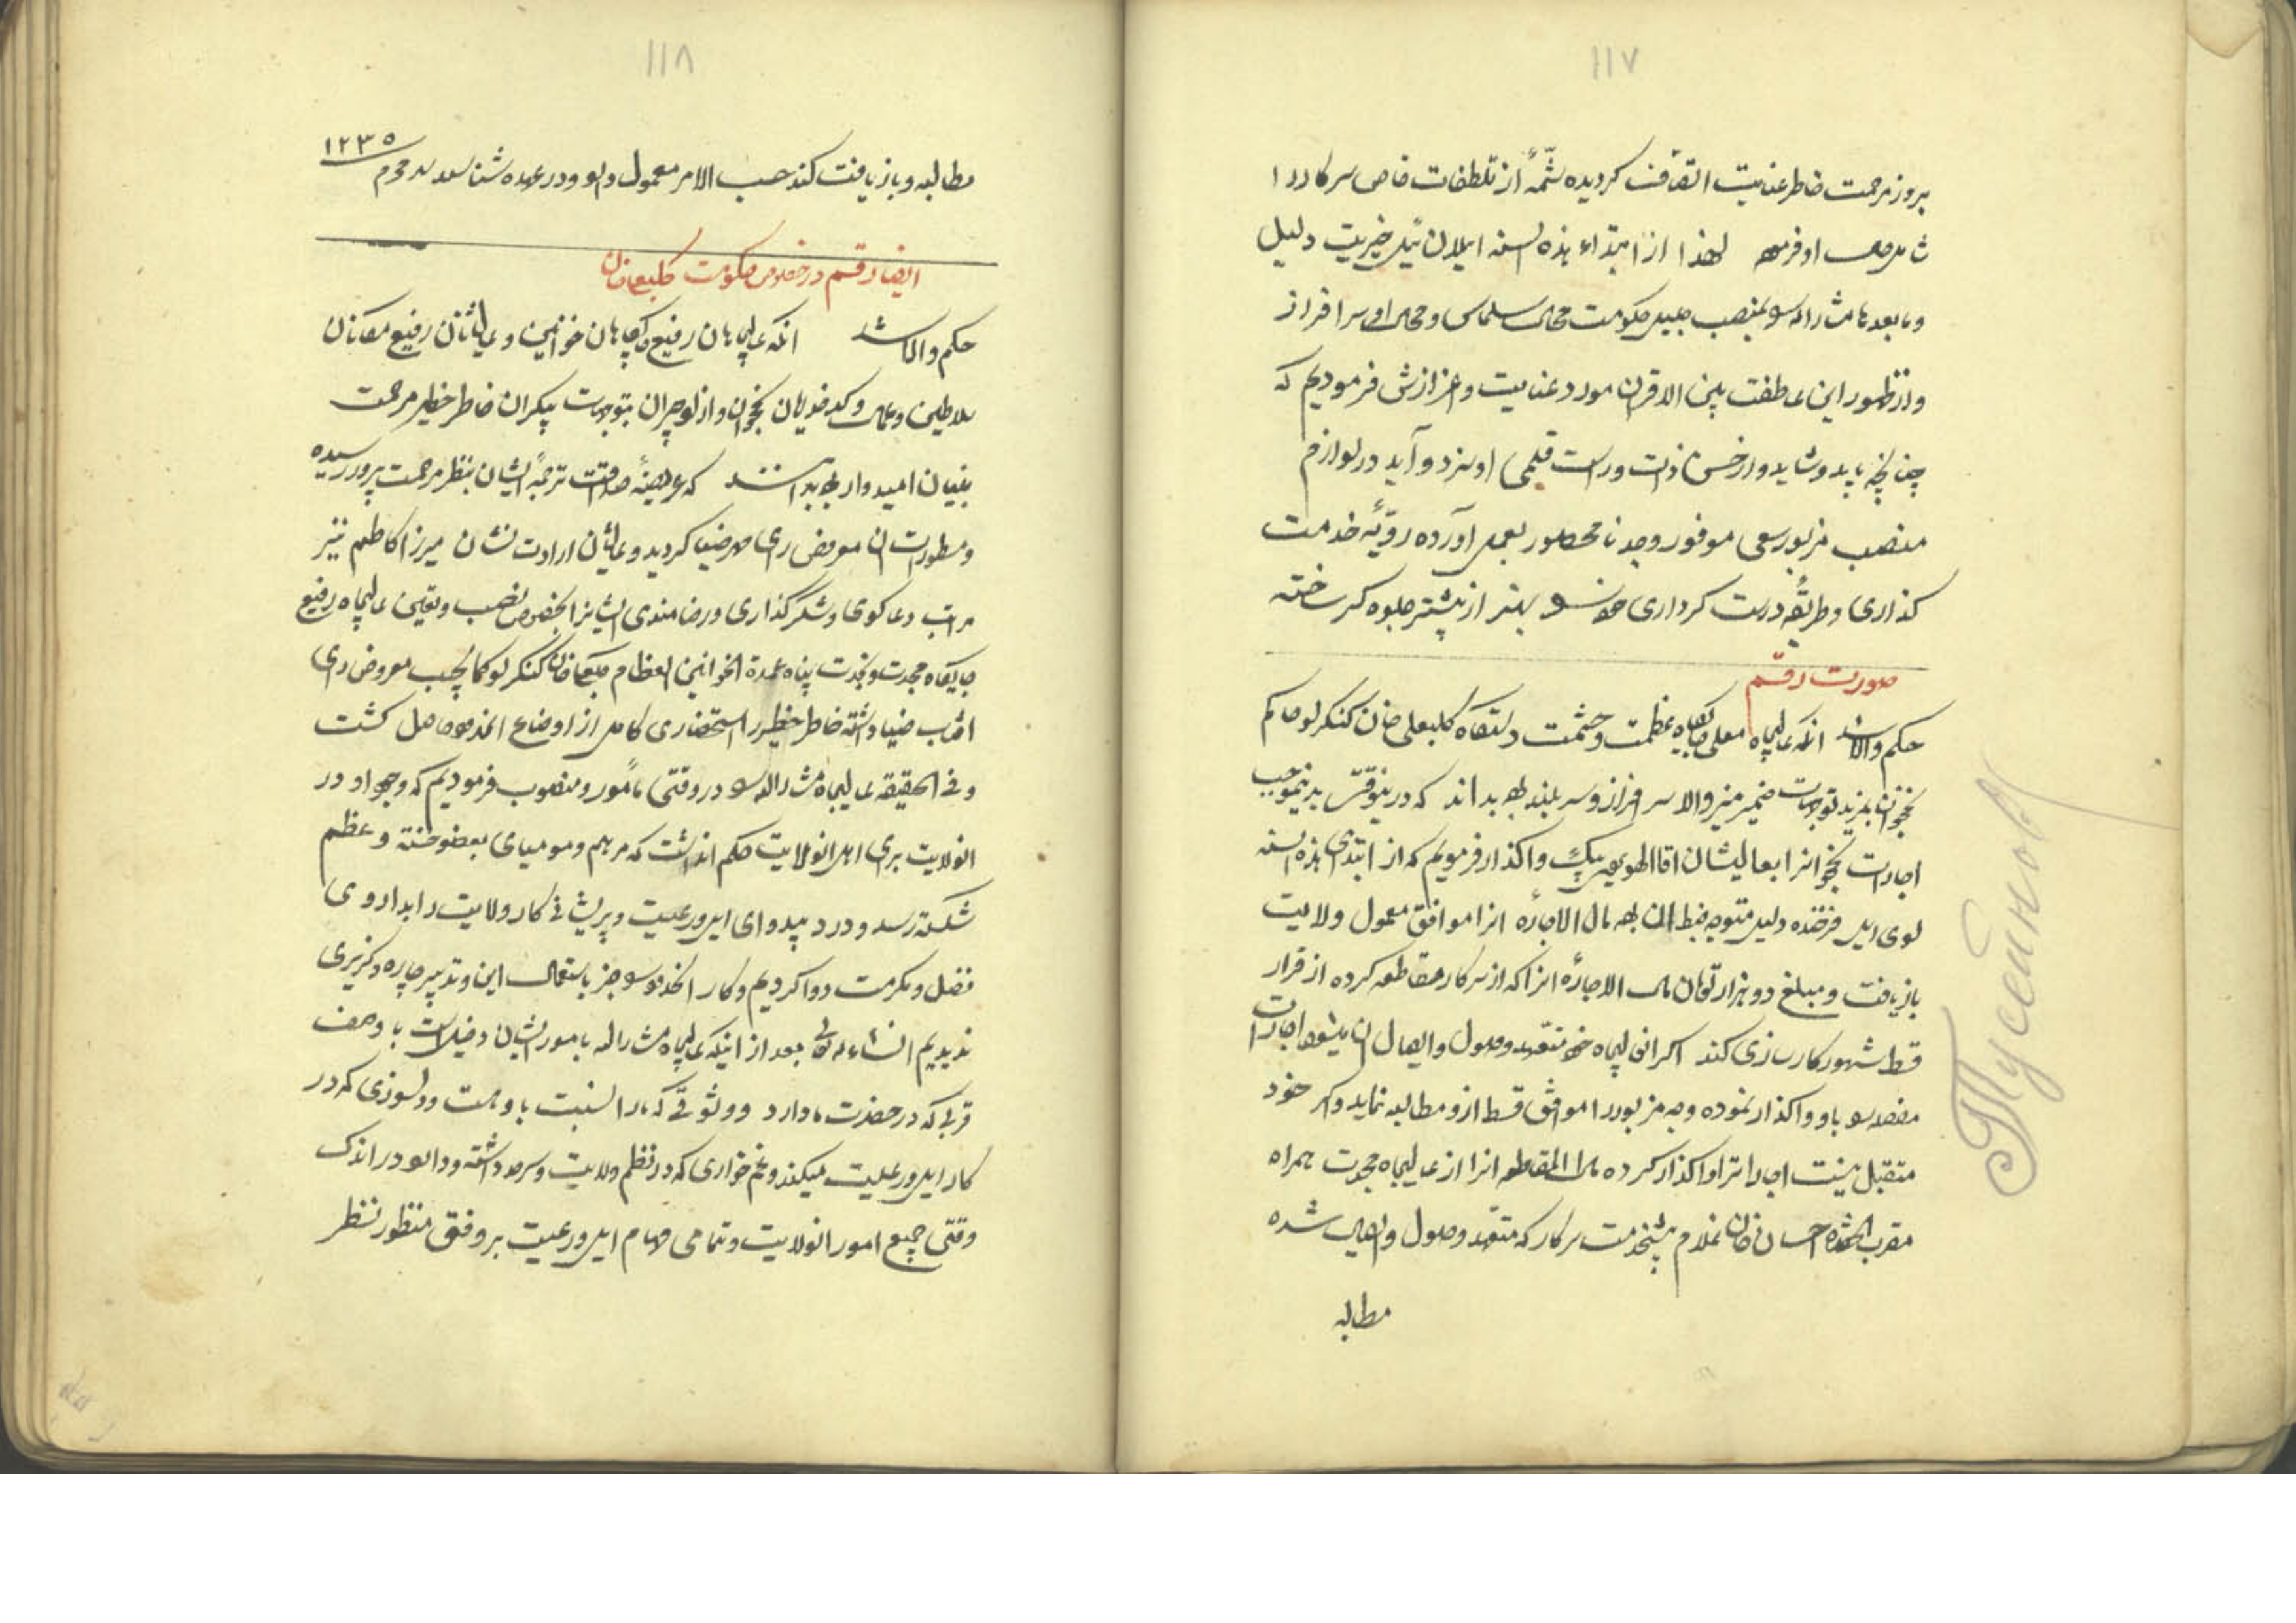 ١١٧
بروز مرحمت خاطر عنایت اتصاف کردیده شمّهٔ از تلطفات خاص سرکار را
شامل او فرموده لهذا از ابتداء هذه السنه ئیلان ئیل خیریت دلیل
و مابعدها مشارالیه را بمنصب جلیل حکومت محال سلماس و محال سرافراز
و از ظهور این عاطفت بین الاقران مورد عنایت و اعزازش فرمودیم که
چنانچه باید و شاید و از حسن ذات و راست قلمی او سزد و آید در لوازم
منصب مزبور سعی موفور و جد نامحصور بعمل آورده رویّهٔ خدمت
کذاری و طریقهٔ درست کرداری خود را بهتر از پیشتر جلوه کر ساخته
صورت رقم
حکم والا شد آنکه عالیجاه معلی جایکاه عظمت و حشمت دستکاه کلبعلی خان کنکرلو حاکم
نخجوان بمزید توجهات ضمیر منیر والا سرافراز و سربلند بوده بداند که درینوقت بدینموجب
اجارات نخجوانرا بعالیشان اقا الهویردی بیک واکذار فرمودیم که از ابتدای هذه السنه
لوی ئیل فرخنده دلیل متوجه ضبط آن بوده مال الاجاره انرا موافق معمول ولایت
بازیافت و مبلغ دو هزار تومان مال الاجاره انرا که از سرکار مقاطعه کرده از قرار
قسط شهور کارسازی کند اکر انعالیجاه خود متعهد وصول و ایصال آن میشود اجارات
مفصله را باو واکذار نموده وجه مزبور را موافق قسط ازو مطالبه نماید و اکر خود
متقبل نیست اجارات را واکذار کرده مال المقاطعه انرا از عالیجاه مجدت همراه
مقرب الحضره احسان خان غلام پیشخدمت سرکار که متعهد وصول و ایصال شده
مطالبه
Тусейнов
١١٨
مطالبه و بازیافت کند حسب الامر معمول دارد و در عهده شناسد محرم ١٢٣٥
ایضا رقم در خصوص حکومت کلبعلیخان
حکم والا شد آنکه عالیجاهان رفیع جایکاهان خوانین و عالیشانان رفیع مکانان
سلاطین و عمال و کدخدایان نخجوان و ازلوجران بتوجهات بیکران خاطر خطیر مرحمت
بنیان امیدوار بوده بدانند که عریضهٔ صداقت ترجمهٔ ایشان بنظر مرحمت پرور رسیده
و مسطورات آن معروض رای مهر ضیا کردید و عالیشان ارادت نشان میرزا کاظم نیز
مراتب دعاکوی و شکرکذاری و رضامندی ایشانرا بخصوص نصب و تعیین عالیجاه رفیع
جایکاه مجدت و نجدت پناه عمدة الخوانین العظام کلبعلیخان کنکرلو کما یجب معروض رای
افتاب ضیا داشته خاطر خطیر را استحضاری کامل از اوضاع انحدود حاصل کشت
و فی الحقیقه عالیجاه مشارالیه را در وقتی مامور و منصوب فرمودیم که وجود او در
انولایت برای اهل انولایت حکم ان داشت که مرهم و مومیای بعضو خسته و عظم
شکسته رسد و درد بیدوای ایل و رعیت و پریشانی کار ولایت را بداروی
فضل و مکرمت دوا کردیم و کار انحدود را جز باستعمال این تدبیر چاره و کزیری
ندیدیم انشاءالله تعالی بعد از اینکه عالیجاه مشارالیه بامور ایشان دخیل است با وصف
قربی که در حضرت ما دارد و وثوقی که ما را نسبت باوست و دلسوزی که در
کار ایل و رعیت میکند و غمخواری که در نظم ولایت و سرحد داشته و دارد در اندک
وقتی جمیع امور انولایت و تمامی مهام ایل و رعیت بر وفق منظور نظر